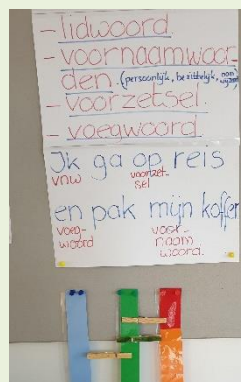 - lidwoord
- voornaamwoor
den. (persoonlijk, bezittelijk, aanwijzend)
- voorzetsel.
- voegwoord
Ik ga op reis
vnw voorzet-
sel
en pak mijn koffer
voeg- voor-
woord naam
woord.